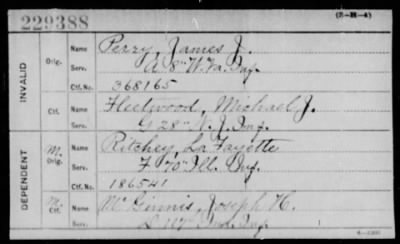 229388
(3-H-4)
INVALID
Orig.
Name Perry, James J.
Serv. A 8" W. Va. Inf.
Ctf. No. 368165
Ctf.
Name Fleetwood, Michael J.
Serv. G 28" N. J. Inf.
DEPENDENT
M.
Orig.
Name Ritchey, La Fayette
Serv. F 70" Ill. Inf.
Ctf. No. 186541
M.
Ctf.
Name McGinnis, Joseph H.
Serv. Inf.